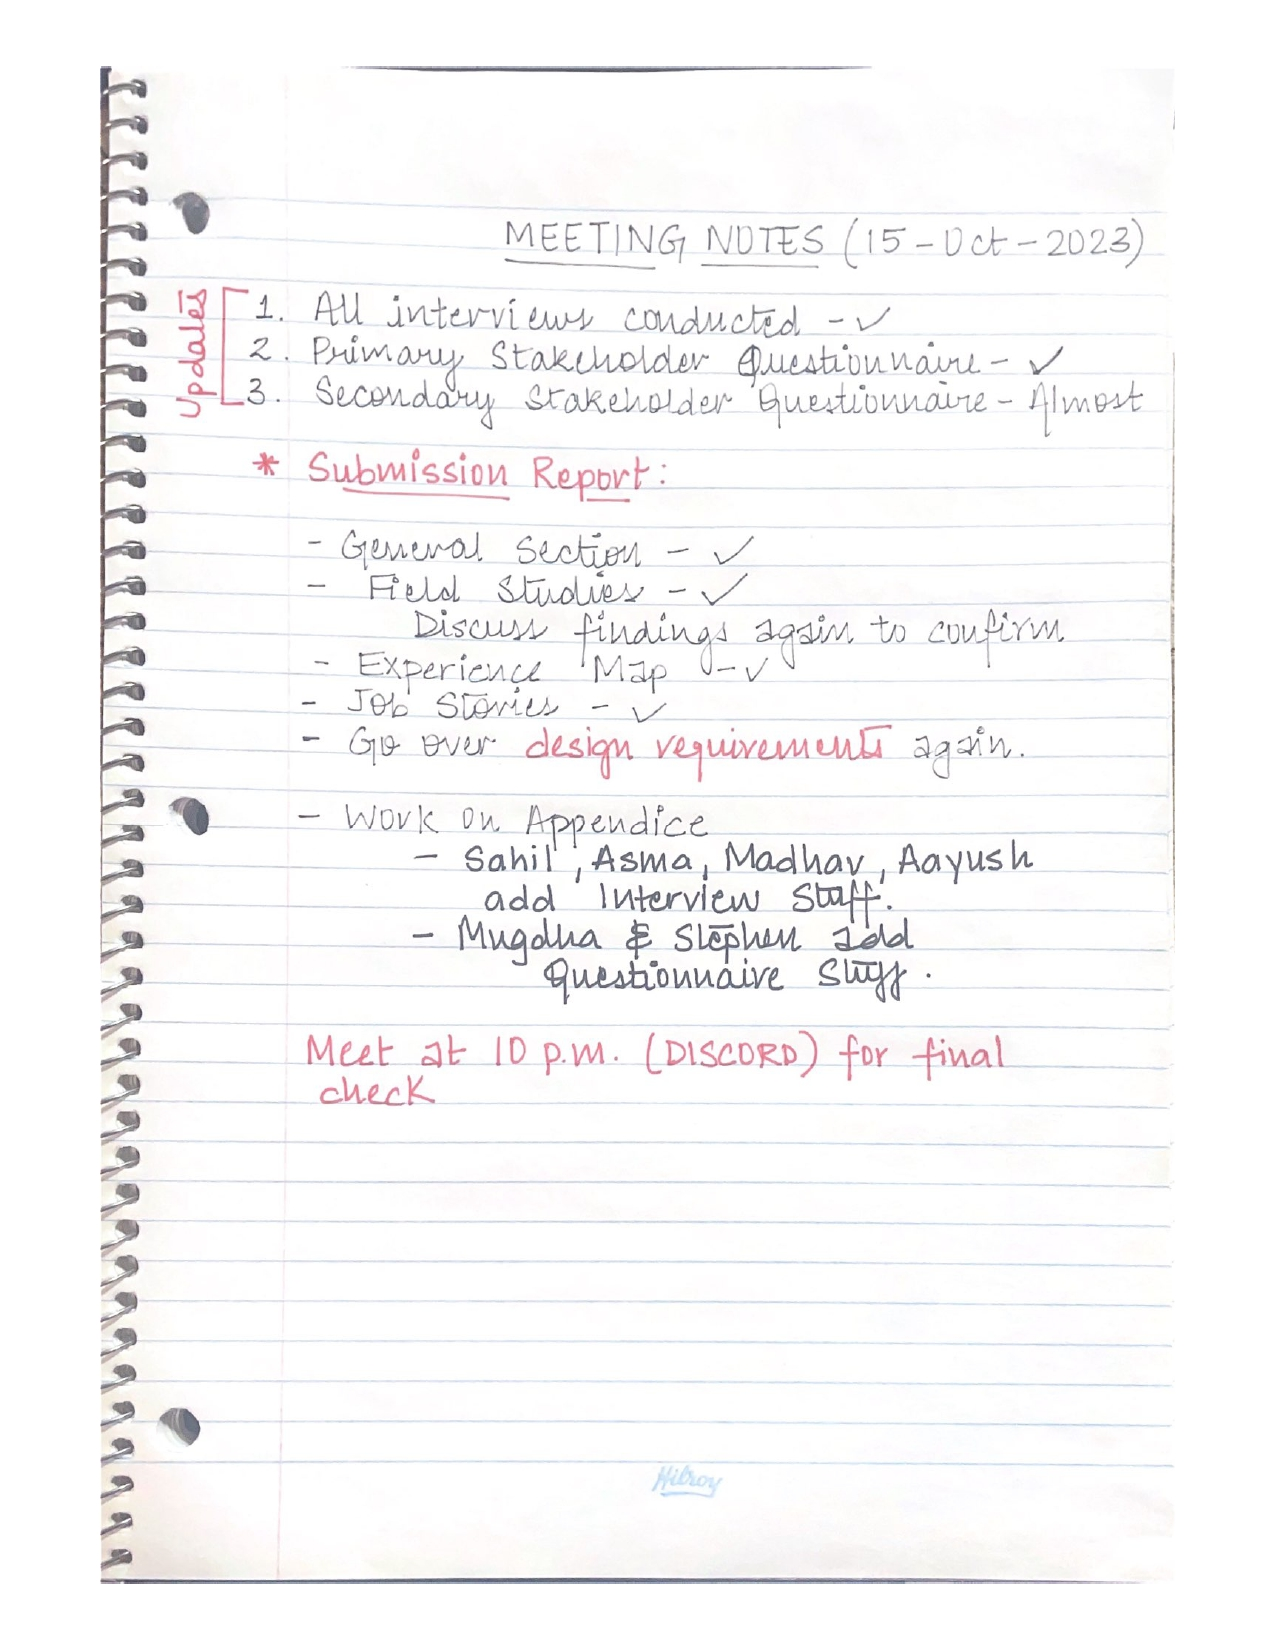 MEETING NOTES (15-Oct-2023)
Updates
1. All interviews conducted - ✓
2. Primary Stakeholder Questionnaire - ✓
3. Secondary Stakeholder Questionnaire - Almost
* Submission Report:
- General Section - ✓
- Field Studies - ✓
Discuss findings again to confirm
- Experience Map - ✓
- Job Stories - ✓
- Go over design requirements again.
- Work on Appendice
- Sahil, Asma, Madhav, Aayush
add Interview Stuff.
- Mugdha & Stephen add
Questionnaire Stuff.
Meet at 10 p.m. (DISCORD) for final
check
Hilroy